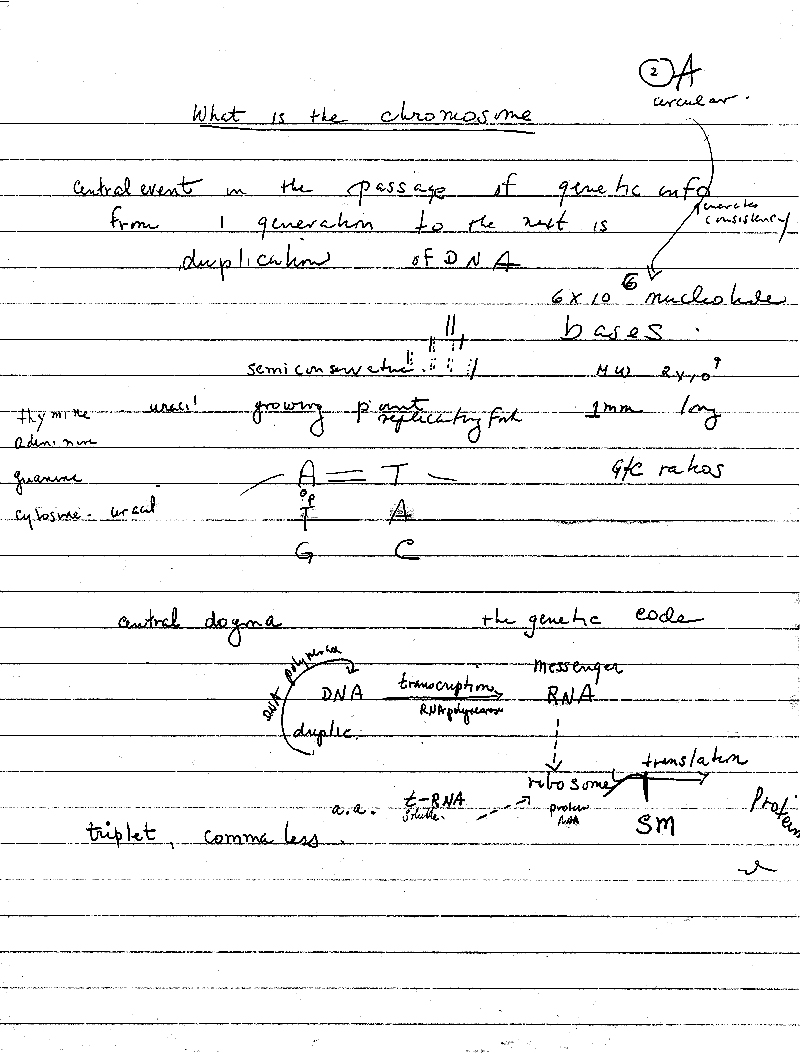 2 A
circular.
What is the chromosome
central event in the passage of genetic info
generates consistency
from 1 generation to the next is
duplication of DNA
6 x 10^6 nucleotide
bases.
semiconservative
MW 2x10^9
thymine uracil growing point 1mm long
replicating fork
adenine
guanine A = T G/C ratios
cytosine - uracil T A
G C
central dogma the genetic code
DNA polymerase
messenger
DNA transcription RNA
RNA polymerase
duplic.
translation
ribosome
a.a. t-RNA
soluble
protein
RNA
SM
Protein
triplet, commaless.